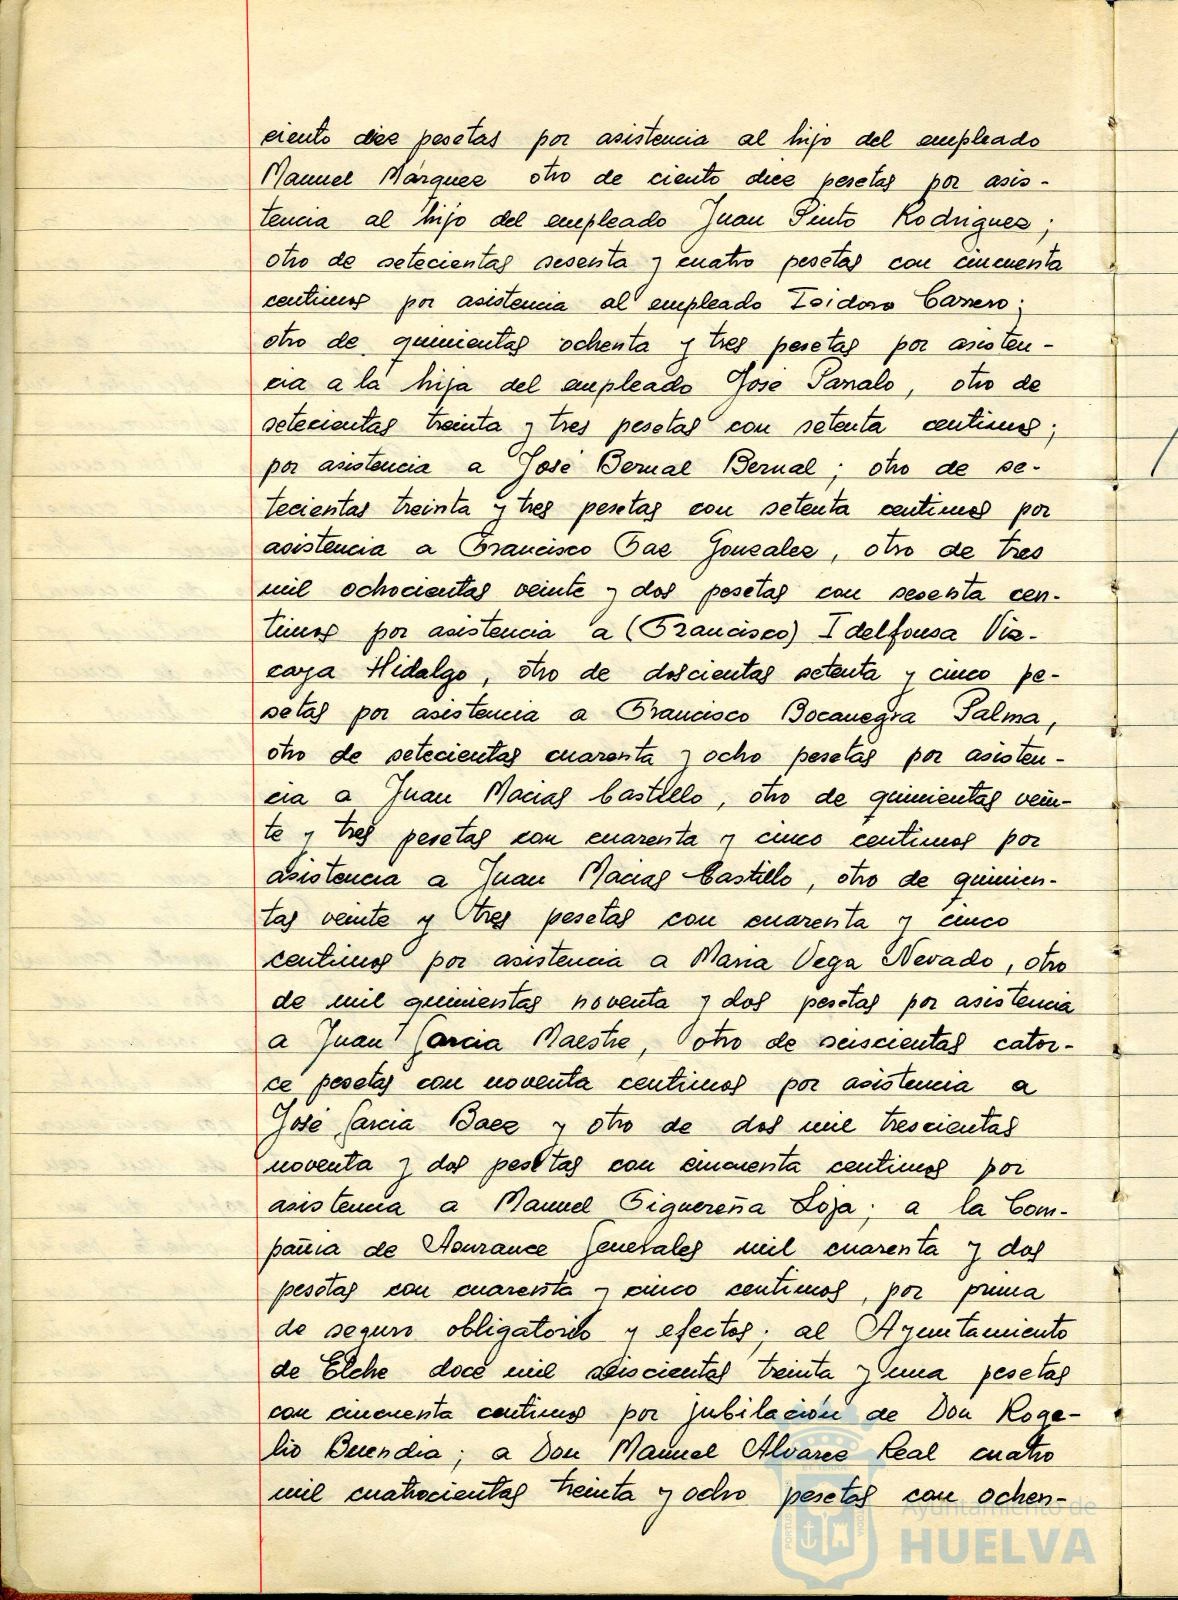 ciento diez pesetas por asistencia al hijo del empleado
Manuel Márquez otro de ciento diez pesetas por asis-
tencia al hijo del empleado Juan Pinto Rodriguez;
otro de setecientas sesenta y cuatro pesetas con cincuenta
centimos por asistencia al empleado Isidoro Carrero;
otro de quinientas ochenta y tres pesetas por asisten-
cia a la hija del empleado José Parralo, otro de
setecientas treinta y tres pesetas con setenta centimos;
por asistencia a José Bernal Bernal; otro de se-
tecientas treinta y tres pesetas con setenta centimos por
asistencia a Francisco Faz Gonzalez, otro de tres
mil ochocientas veinte y dos pesetas con sesenta cen-
timos por asistencia a (Francisco) Idelfonsa Viz-
caya Hidalgo, otro de doscientas setenta y cinco pe-
setas por asistencia a Francisco Bocanegra Palma,
otro de setecientas cuarenta y ocho pesetas por asisten-
cia a Juan Macias Castillo, otro de quinientas vein-
te y tres pesetas con cuarenta y cinco centimos por
asistencia a Juan Macias Castillo, otro de quinien-
tas veinte y tres pesetas con cuarenta y cinco
centimos por asistencia a Maria Vega Nevado, otro
de mil quinientas noventa y dos pesetas por asistencia
a Juan Garcia Maestre, otro de seiscientas cator-
ce pesetas con noventa centimos por asistencia a
José Garcia Baez y otro de dos mil trescientas
noventa y dos pesetas con cincuenta centimos por
asistencia a Manuel Figuereña Loja; a la Com-
pañia de Asurance Generales mil cuarenta y dos
pesetas con cuarenta y cinco centimos, por prima
de seguro obligatorio y efectos; al Ayuntamiento
de Elche doce mil seiscientas treinta y una pesetas
con cincuenta centimos por jubilación de Don Roge-
lio Buendia; a Don Manuel Alvarez Real cuatro
mil cuatrocientas treinta y ocho pesetas con ochen-
Ayuntamiento de
HUELVA